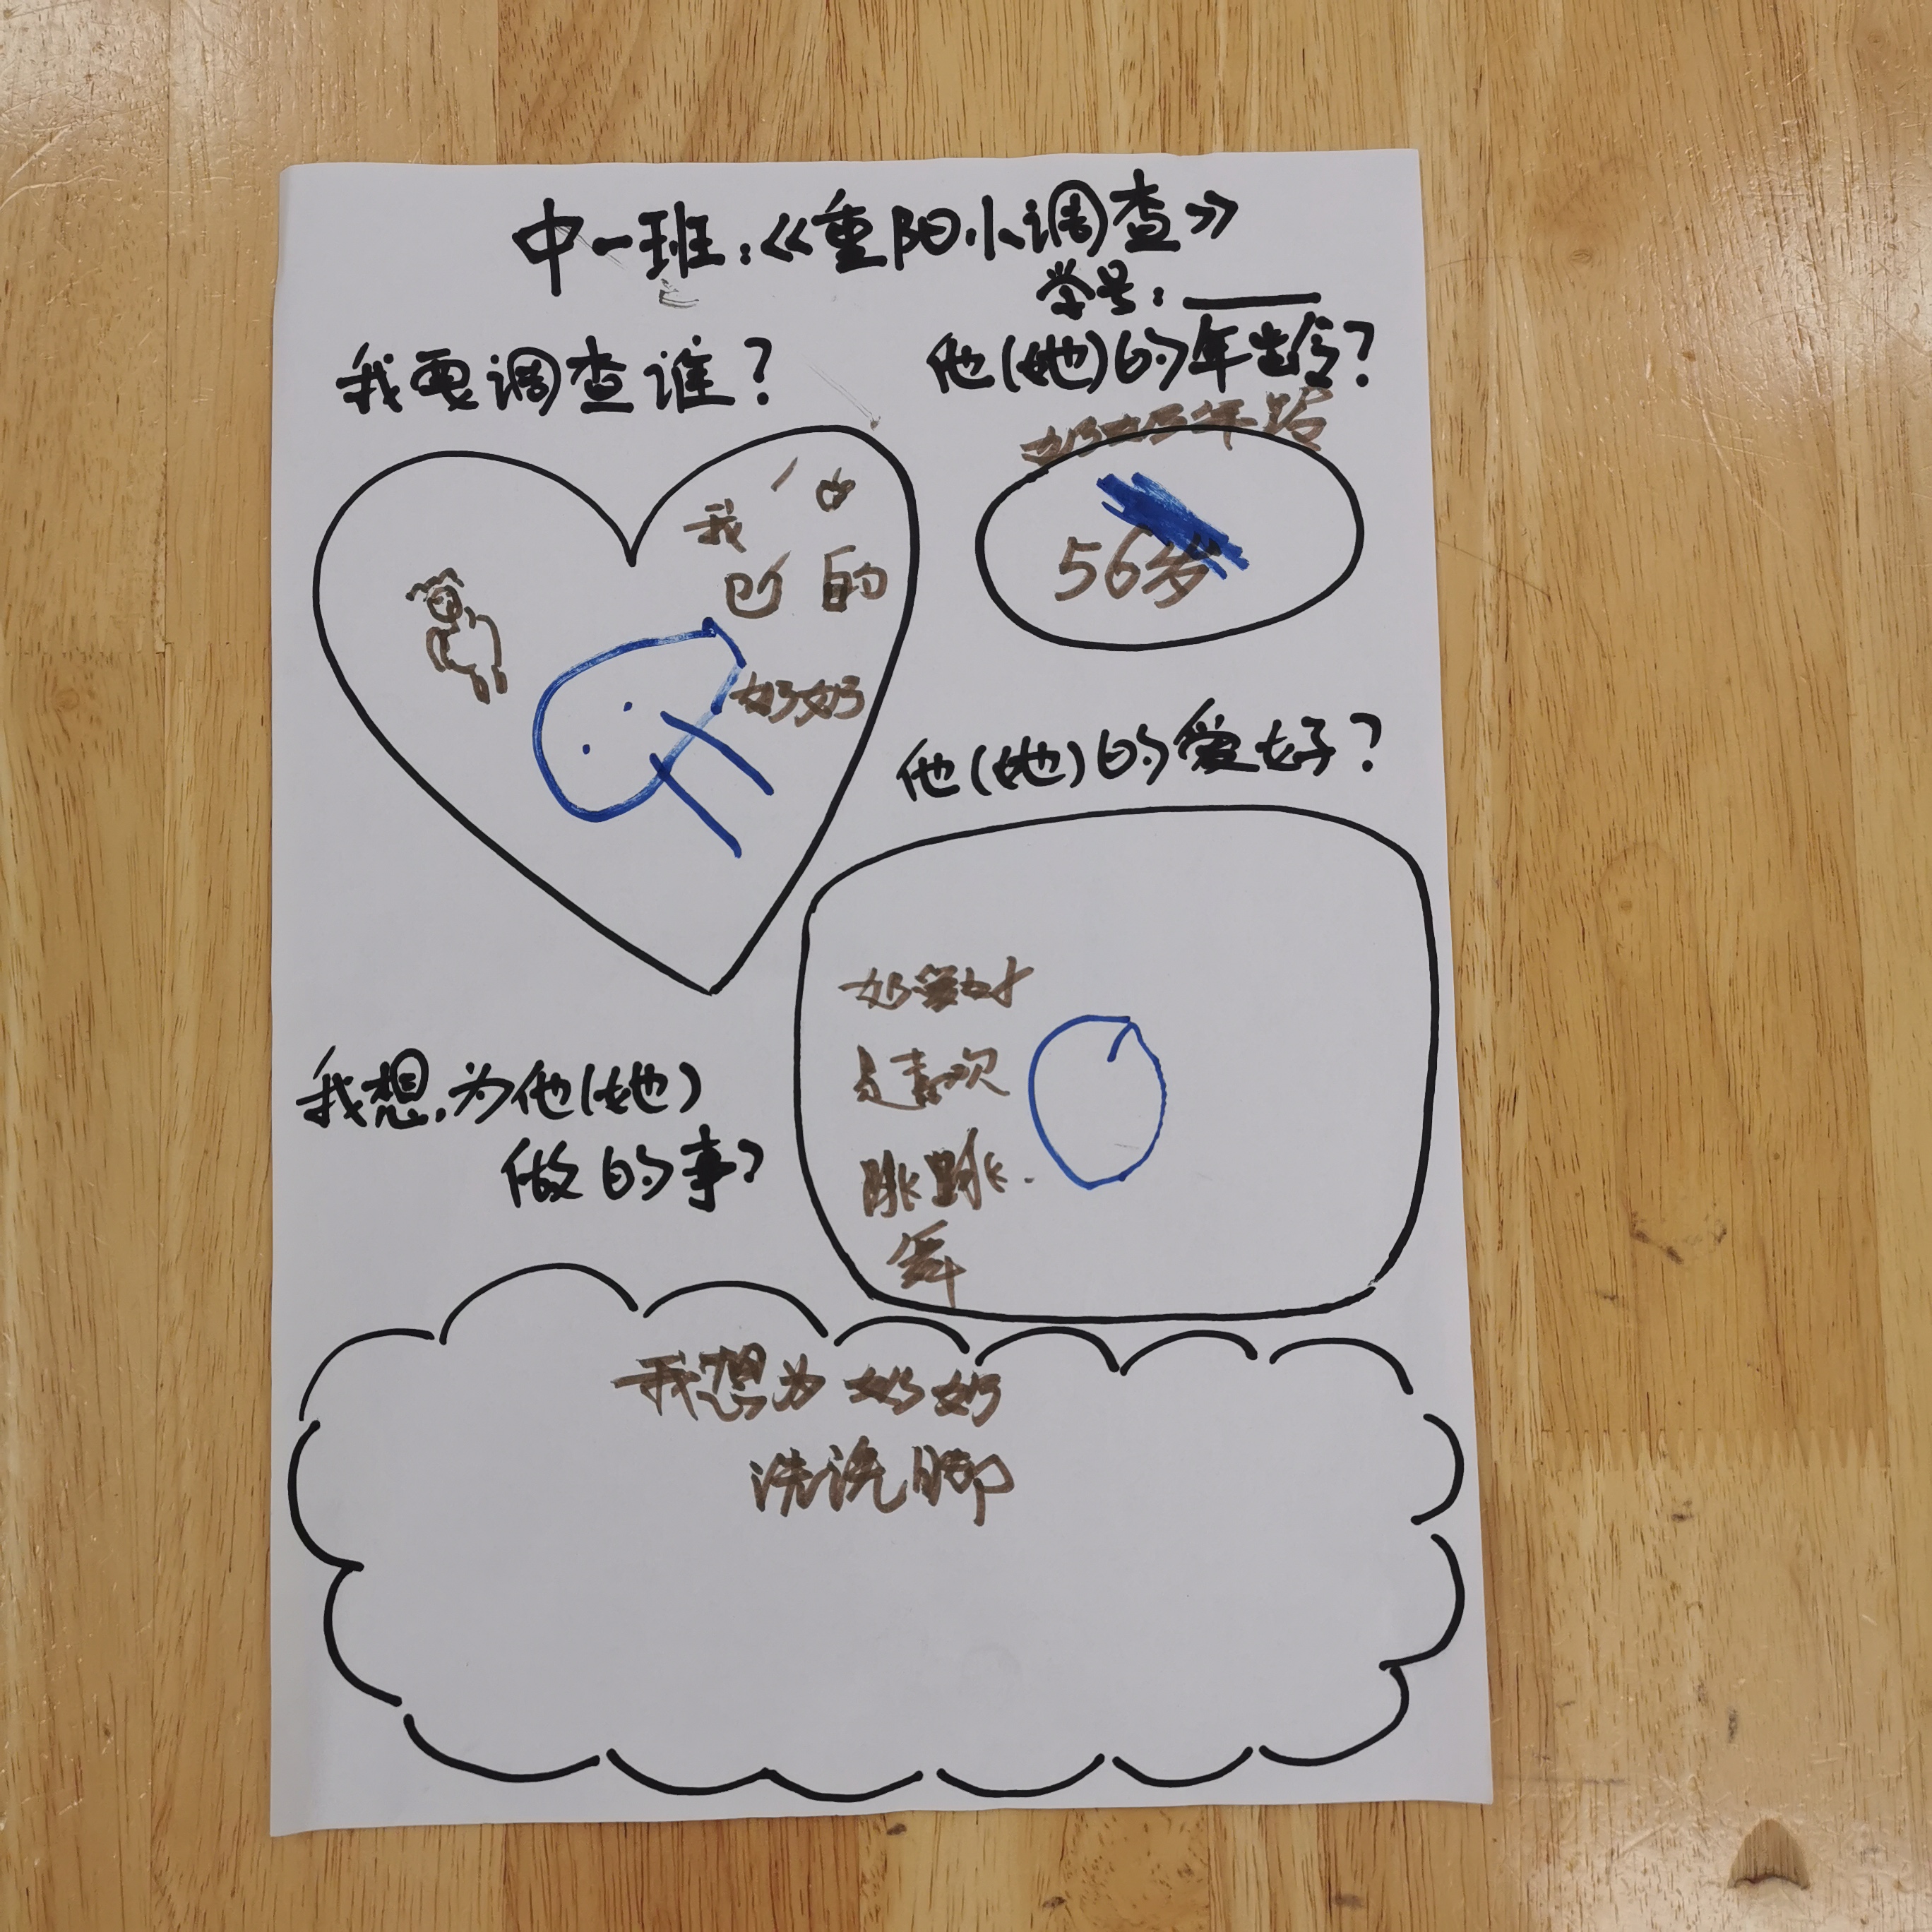 中一班:《重阳小调查》
学号:
我要调查谁?
他(她)的年龄?
奶奶年龄
56岁
我
的
奶奶
他(她)的爱好?
奶爱好
是喜欢
跳跳
舞
我想为他(她)
做的事?
我想为奶奶
洗洗脚